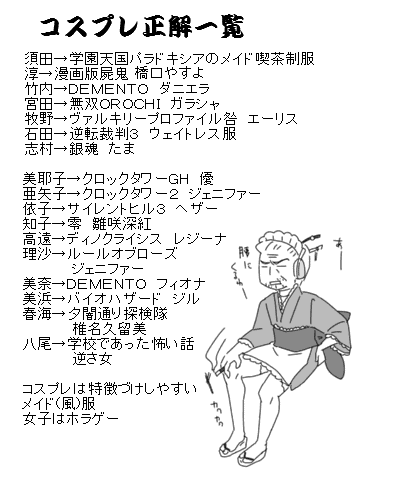 コスプレ正解一覧
須田→学園天国パラドキシアのメイド喫茶制服
淳→漫画版屍鬼 橋口やすよ
竹内→DEMENTO ダニエラ
宮田→無双OROCHI ガラシャ
牧野→ヴァルキリープロファイル咎 エーリス
石田→逆転裁判3 ウェイトレス服
志村→銀魂 たま
美耶子→クロックタワーGH 優
亜矢子→クロックタワー2 ジェニファー
依子→サイレントヒル3 ヘザー
知子→零 雛咲深紅
高遠→ディノクライシス レジーナ
理沙→ルールオブローズ
ジェニファー
美奈→DEMENTO フィオナ
美浜→バイオハザード ジル
春海→夕闇通り探検隊
椎名久留美
八尾→学校であった怖い話
逆さ女
コスプレは特徴づけしやすい
メイド(風)服
女子はホラゲー